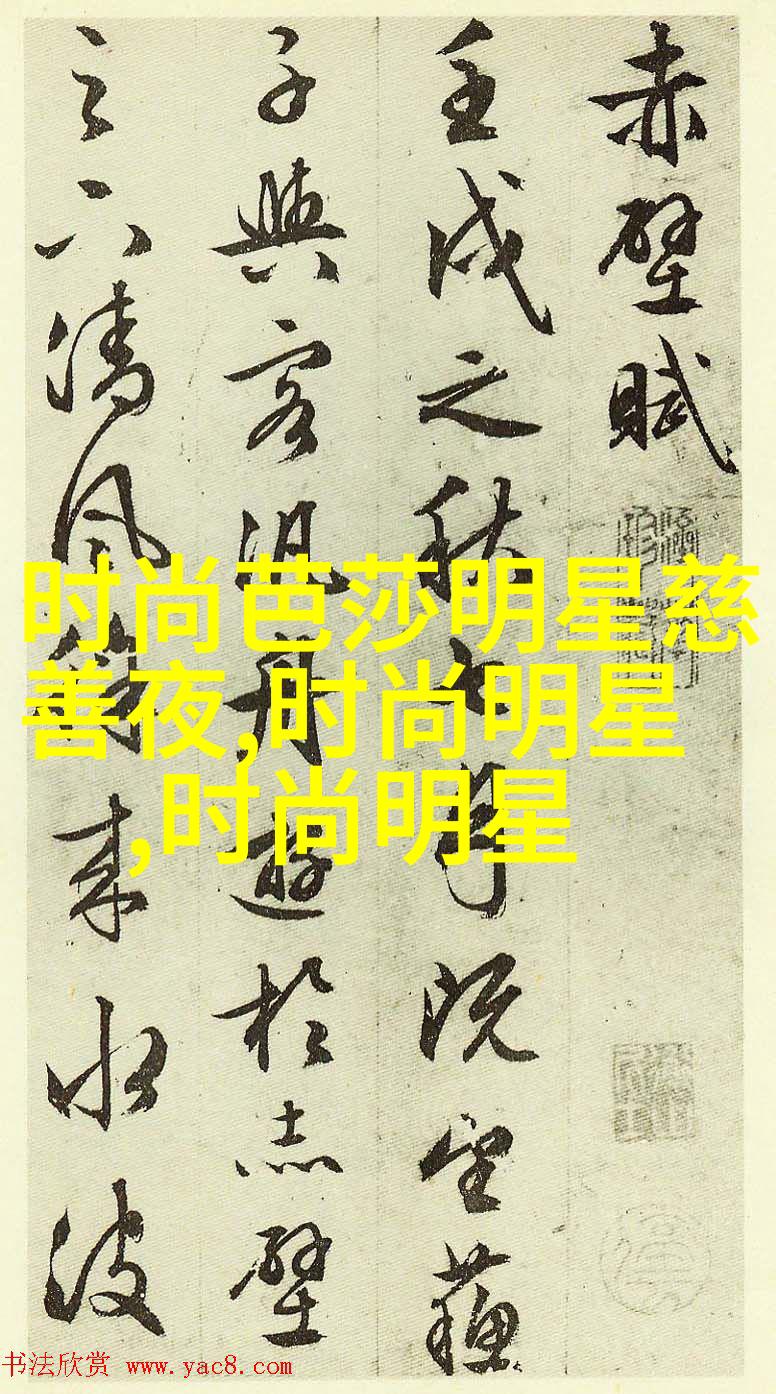 赤壁賦
壬戌之秋七月既望蘇
子與客汎舟遊於赤壁
之下清風徐來水波
时尚芭莎明星慈
善夜,时尚明星
,时尚明星
书法欣赏 www.yac8.com